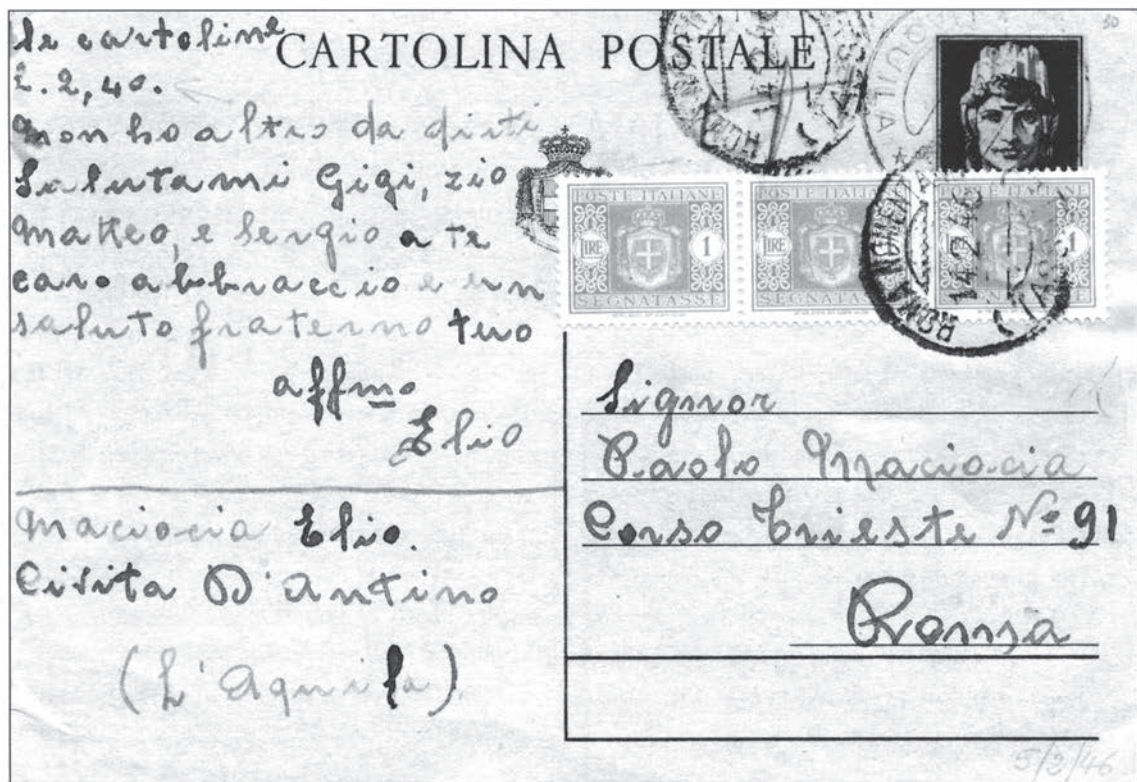 CARTOLINA POSTALE
30
le cartoline
L. 2,40.
non ho altro da dirti
Salutami Gigi, zio
Matteo, e Sergio a te
caro abbraccio e un
saluto fraterno tuo
affmo
Elio
Maciocia Elio.
Civita D'Antino
(L'Aquila)
AQUILA
POSTE ITALIANE
LIRE 1
SEGNATASSE
POSTE ITALIANE
LIRE
SEGNATASSE
1
ROMA NOMENTANO
14.2.46
Signor
Paolo Maciocia
Corso Trieste No 91
Roma
5/3/46